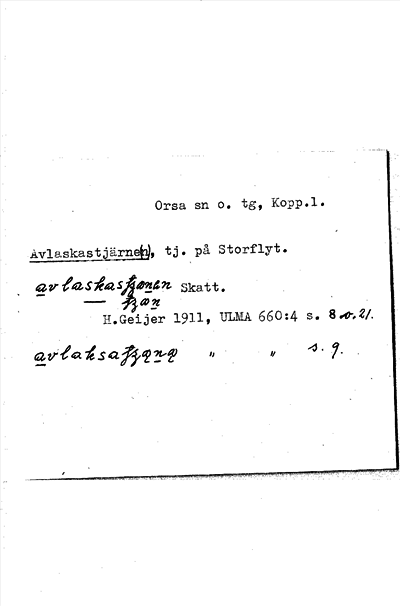 Orsa sn o. tg, Kopp.l.
Avlaskastjärne(n), tj. på Storflyt.
Skatt.
H.Geijer 1911, ULMA 660:4 s. 8 o. 21.
" " s. 9.